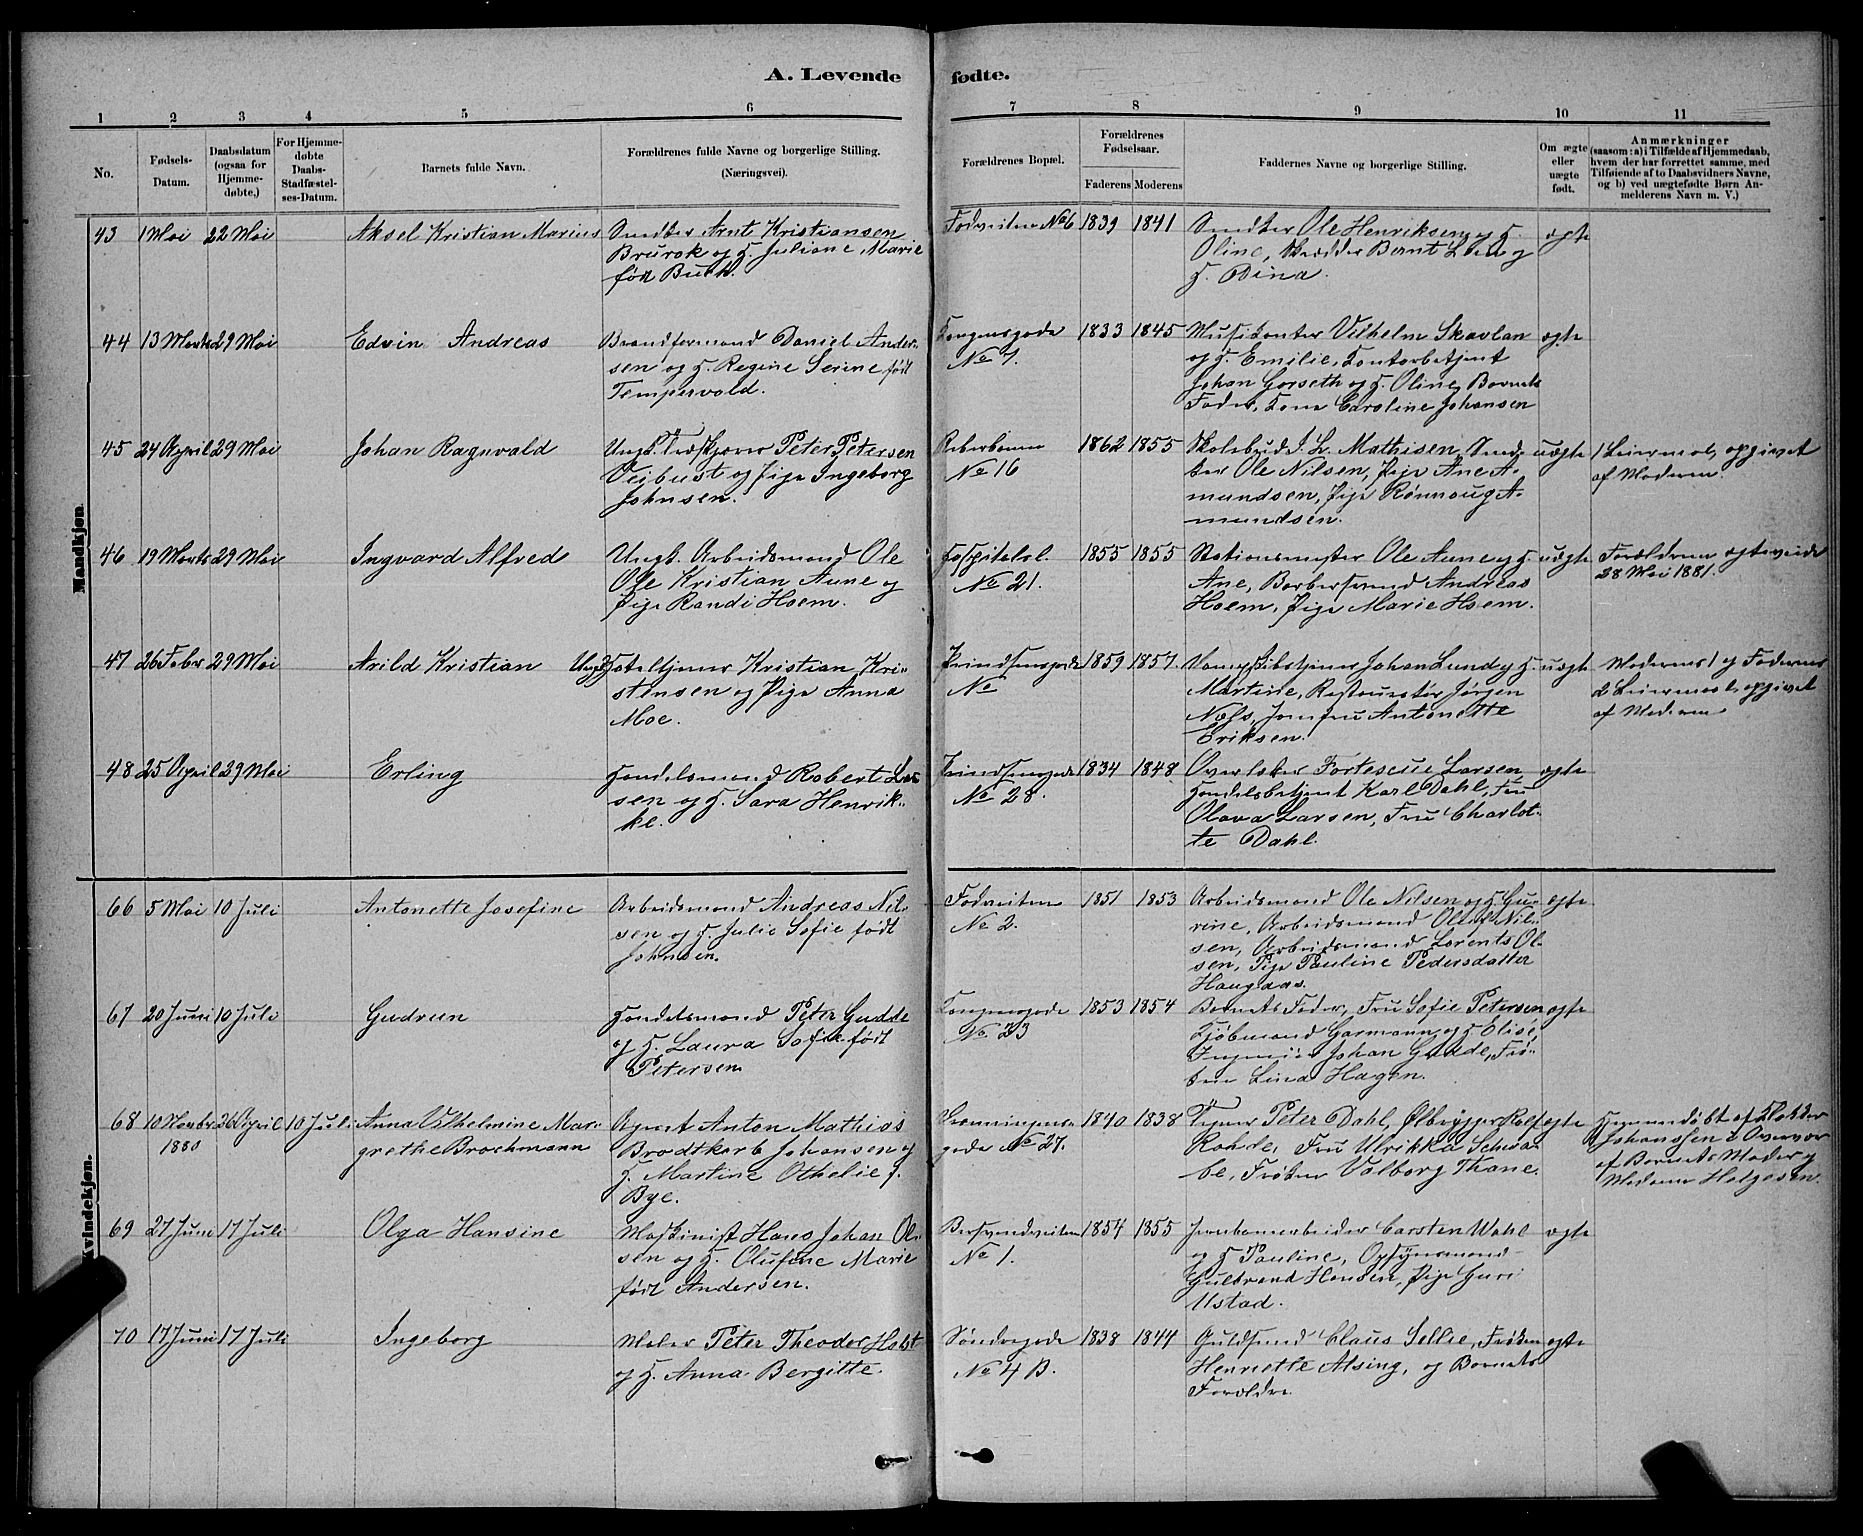 A. Levende fødte.
1 2 3 4 5 6 7 8 9 10 11
No.
Fødsels-Datum.
Daabsdatum (ogsaa for Hjemme-døbte.)
For Hjemme-døbte Daabs-Stadfæstel-ses-Datum.
Barnets fulde Navn.
Forældrenes fulde Navne og borgerlige Stilling.
(Næringsvei).
Forældrenes Bopæl.
Forældrenes Fødselsaar.
Faderens Moderens
Faddernes Navne og borgerlige Stilling.
Om ægte eller uægte født.
Anmærkninger
(saasom: a) i Tilfælde af Hjemmedaab,
hvem der har forrettet samme, med
Tilføiende af to Daabsvidners Navne,
og b) ved uægtefødte Børn An-
melderens Navn m. V.)
Mandkjøn.
43 1 Mai 22 Mai Aksel Kristian Marius
Snedker Arnt Kristiansen
Brurok og H. Juliane Marie
født Buck.
Fodveiten No 6 1839 1841
Snedker Ole Henriksen og H.
Oline, Skrædder Bernt Lein og
H. Dina.
ægte
44 13 Marts 29 Mai Edvin Andreas
Brandformand Daniel Ander-
sen og H. Regine Serine født
Tempervold.
Kongensgade
No 7.
1833 1845
Musikanter Vilhelm Skavlan
og H. Emilie, Kontorbetjent
Johan Gorseth og H. Oline, Barnets
Fader, Kone Caroline Johansen
ægte
45 24 April 29 Mai Johan Ragnvald
Ungk. Træskjærer Peter Petersen
Veibust og Pige Ingeborg
Johnsen.
Reberbanen
No 16
1862 1855
Skolebud J. L. Mathisen, Sned-
ker Ole Nilsen, Pige Ane A-
mundsen, Pige Rønnoug A-
mundsen.
uægte
1 Leiermaal, opgivet
af Moderen.
46 19 Marts 29 Mai Ingvard Alfred
Ungk. Arbeidsmand Ole
Ole Kristian Aune og
Pige Randi Hoem.
Hospitalsl.
No 21.
1855 1855
Stationsmester Ole Aune og H.
Ane, Barbersvend Andreas
Hoem, Pige Marie Hoem.
uægte
Forældrene ægteviede
28 Mai 1881.
47 26 Febr 29 Mai Arild Kristian
Ungk. Hoteltjener Kristian Kri-
stensen og Pige Anna
Moe.
Prindsensgade
No
1859 1857
Johan Lund og H.
Martine, Restauratør Jørgen
Næss, Jomfru Antonette
Eriksen.
uægte
Moderens 1 og Faderens
2 Leiermaal, opgivet
af Moderen
48 25 April 29 Mai Erling
Handelsmand Robert Lar-
sen og H. Sara Henrik-
ke.
Prindsensgade
No 28.
1834 1848
Overlos Fortescue Larsen,
Handelsbetjent Karl Dahl, Fru
Olava Larsen, Fru Charlot-
te Dahl.
ægte
Kvindekjøn.
66 5 Mai 10 Juli Antonette Josefine
Arbeidsmand Andreas Nil-
sen og H. Julie Sofie født
Johnsen.
Fodveiten
No 2.
1851 1853
Arbeidsmand Ole Nilsen og H. Gu-
rine, Arbeidsmand Oluf Nil-
sen, Arbeidsmand Lorents Ol-
sen, Pige Pauline Pedersdatter
Haugaas.
ægte
67 20 Juni 10 Juli Gudrun
Handelsmand Peter Gudde
og H. Laura Sofie født
Petersen
Kongensgade
No 23
1853 1854
Barnets Fader, Fru Sofie Petersen
Kjøbmand Garmann og H. Elise,
Ingeniør Johan Gudde, Frø-
ken Lina Hagen.
ægte
68 10 Novbr 1880 26 April 10 Juli Anna Vilhelmine Mar-
grethe Brochmann
Agent Anton Mathias
Brodtkorb Johansen og
H. Martine Othelie f.
Bye.
Dronningens-
gade No 27.
1840 1838
Tegner Peter Dahl, Ølbrygger Rolf
Rohde, Fru Ulrikka Schwa-
be, Frøken Valborg Thane.
ægte
Hjemmedøbt af Klokker
Johanssen i Overvær
af Barnets Moder og
Madame Helgesen.
69 27 Juni 17 Juli Olga Hansine
Maskinist Hans Johan Ol-
sen og H. Olufine Marie
født Andersen.
Bersvendveiten
No 1.
1854 1855
Jernbanearbeider Carsten Wahl
og H. Pauline, Opsynsmand
Gulbrand Hansen, Pige Guri
Ustad.
ægte
70 17 Juni 17 Juli Ingeborg
Maler Peter Theodor Holst
og H. Anna Bergitte.
Søndregade
No 4 B.
1838 1844
Guldsmed Claus Sellie, Frøken
Henriette Alsing, og Barnets
Forældre.
ægte